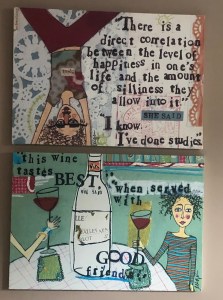 "There is a
direct correlation
between the level of
happiness in one's
life and the amount
of silliness they
allow into it."
SHE SAID
I
know.
I've done studies."
"this wine
tastes
BEST
"when served
with
GOOD
friends"